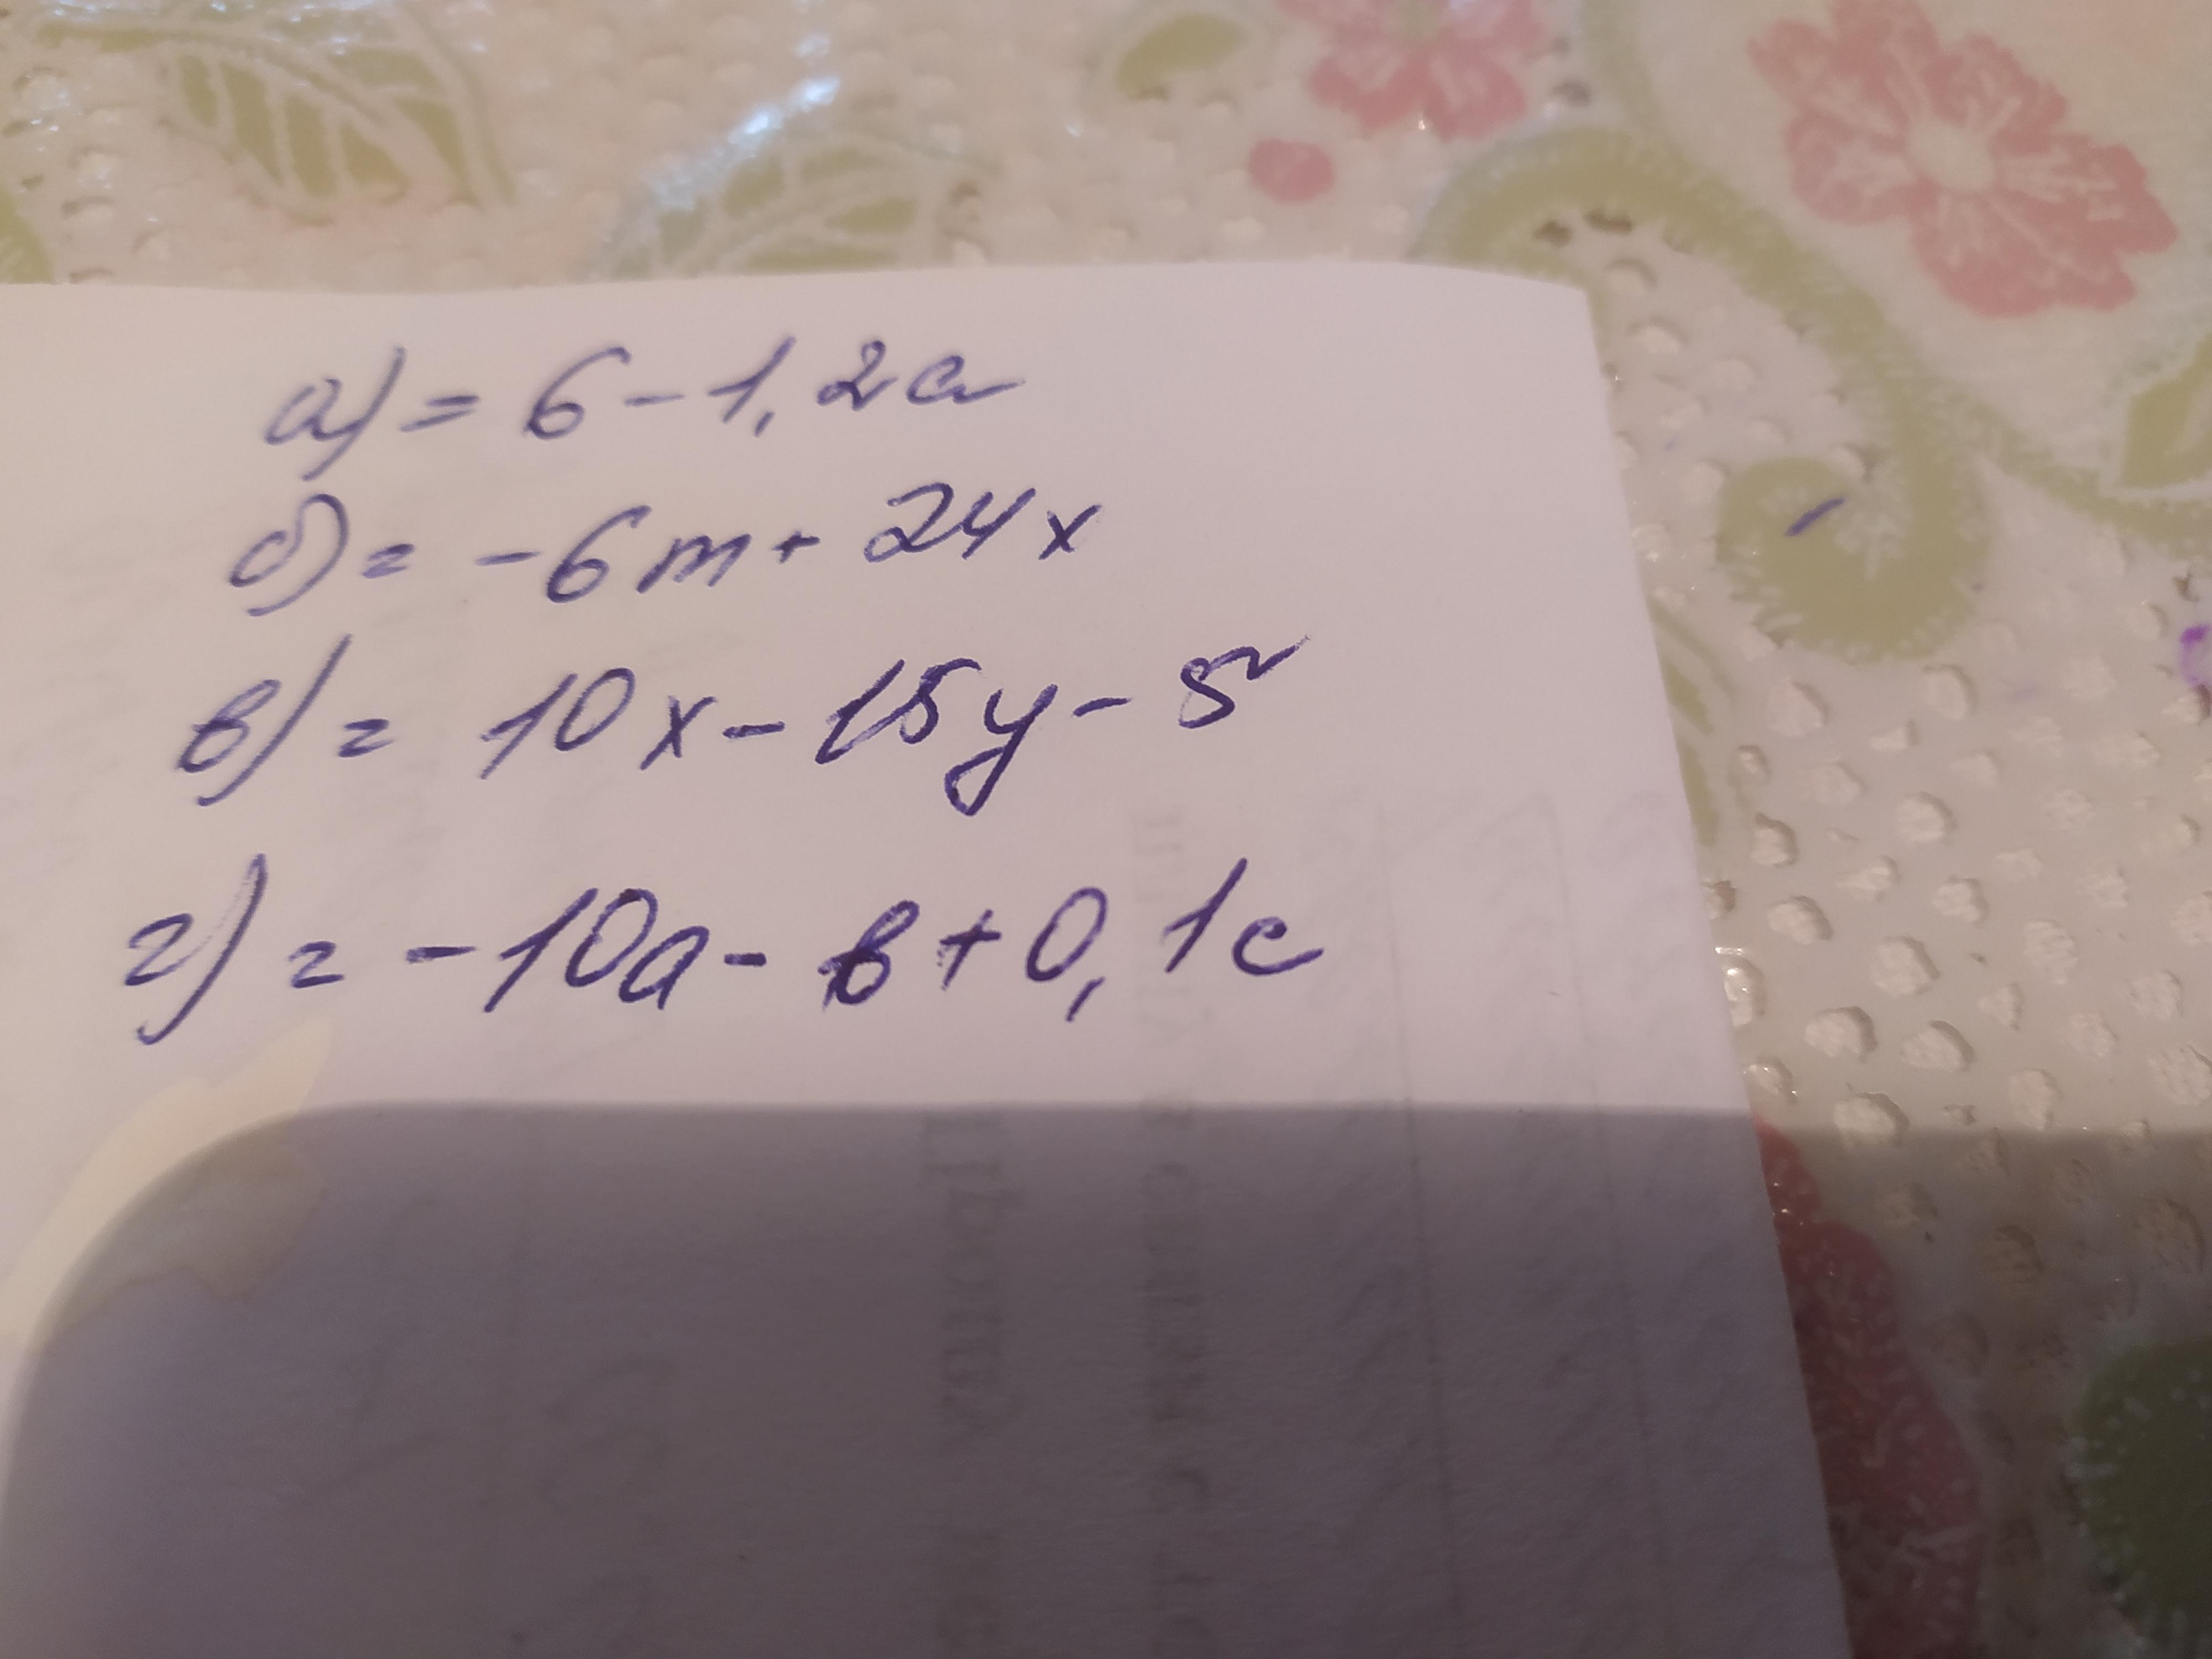 а) = 6 - 1,2a
б) = -6m + 24x
в) = 10x - 15y - 5
г) = -10a - в + 0,1c